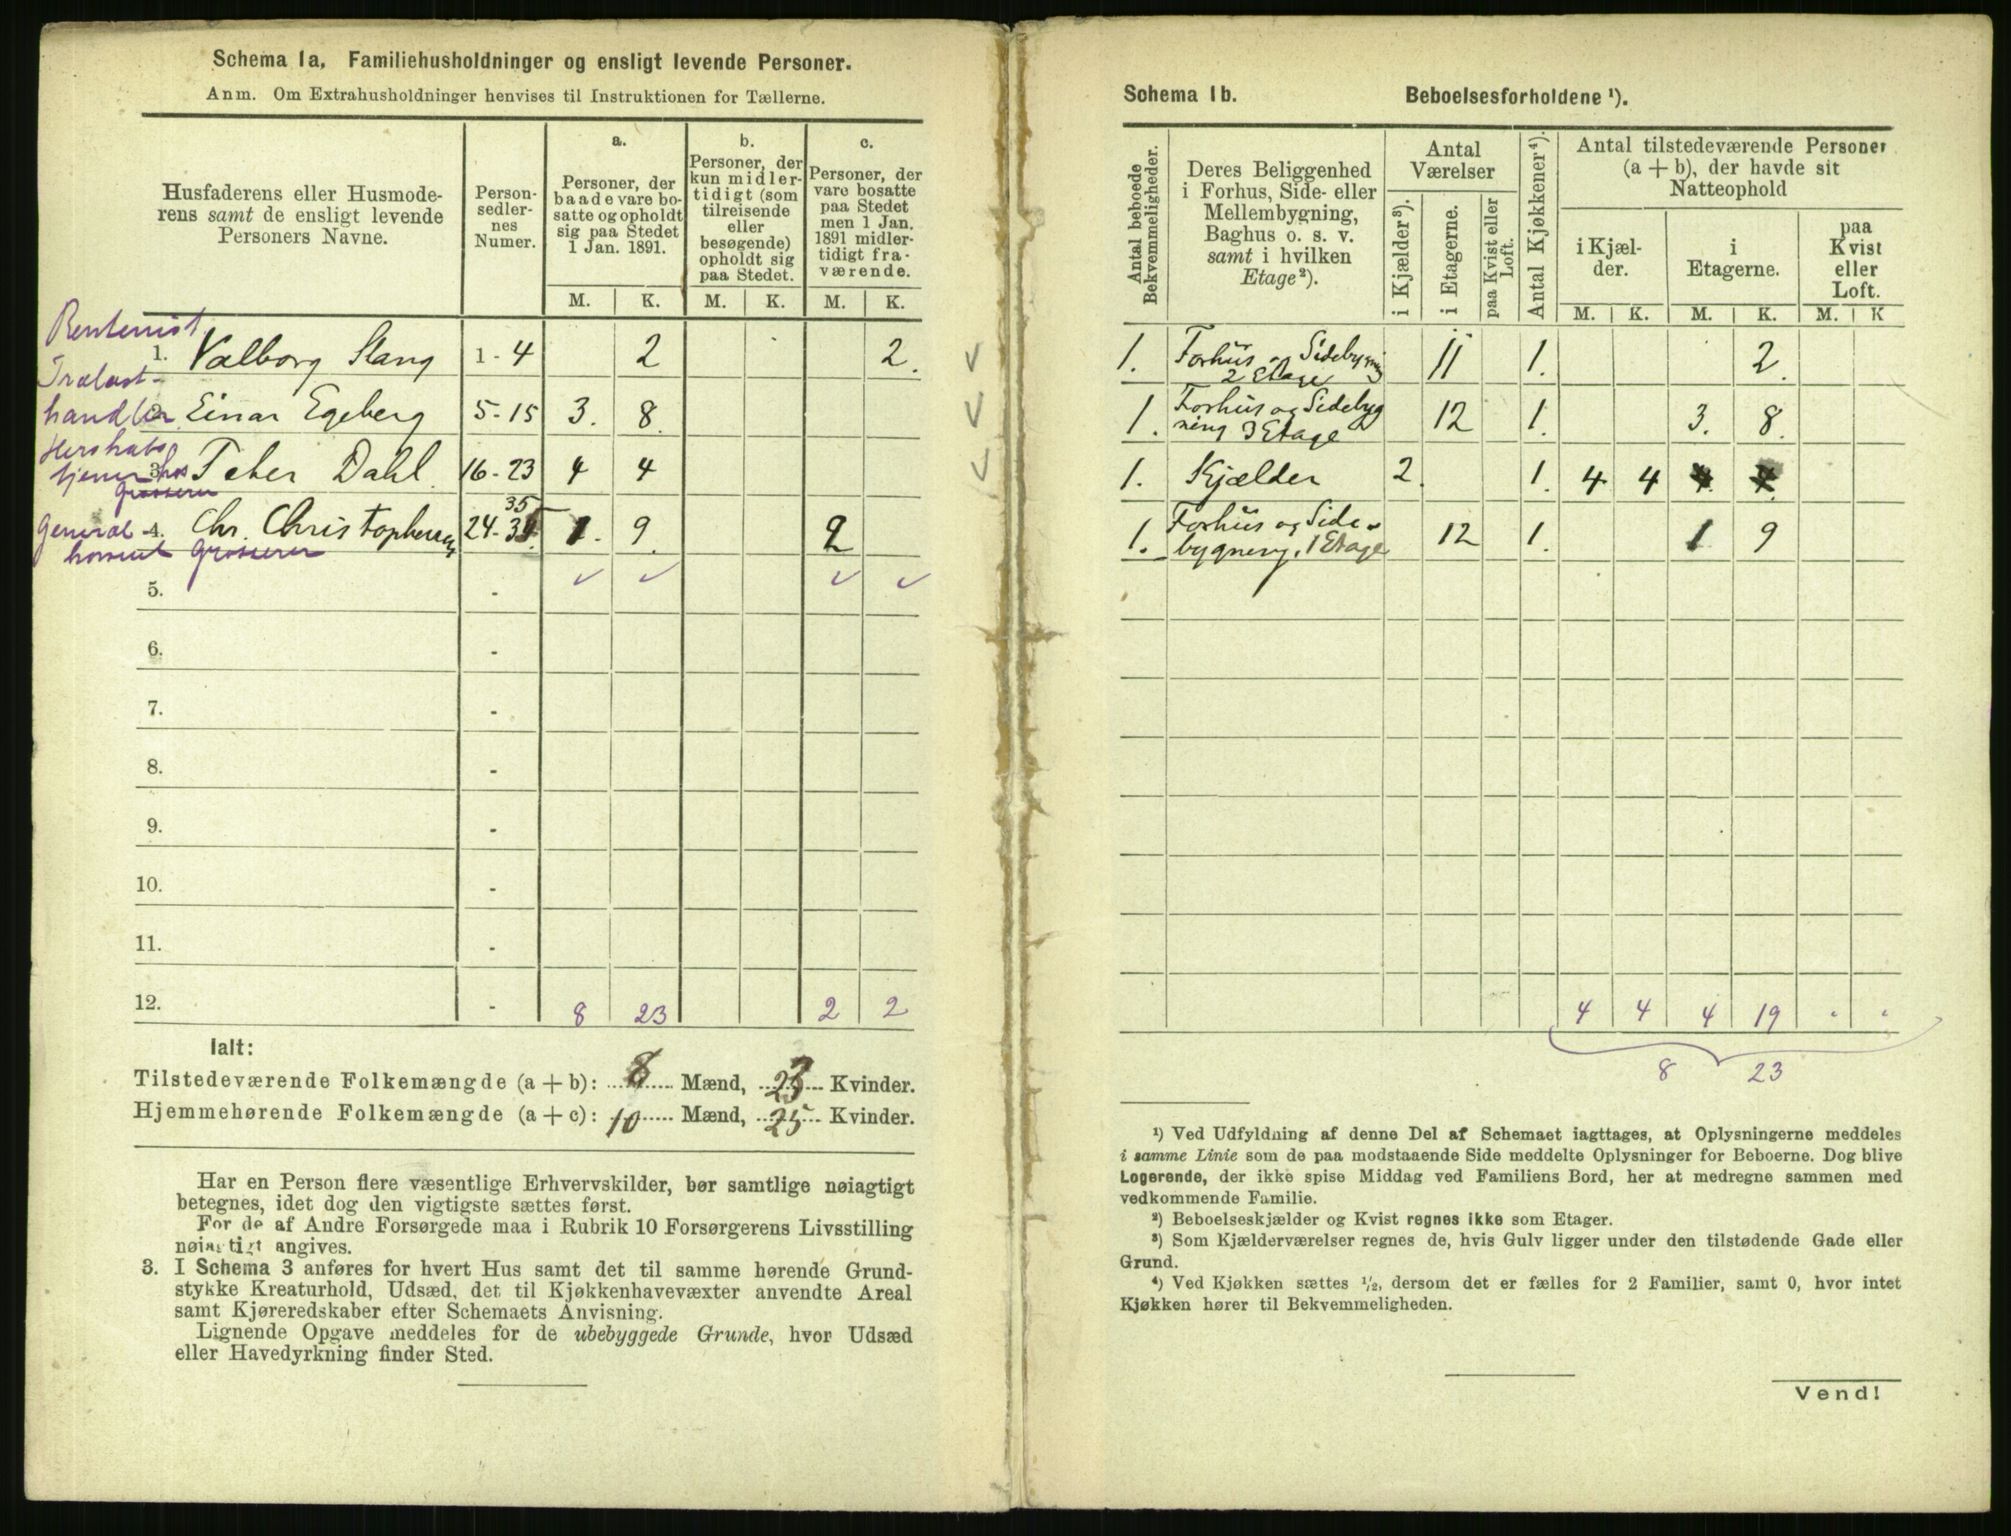 Schema 1a, Familiehusholdninger og ensligt levende Personer.
Anm. Om Extrahusholdninger henvises til Instruktionen for Tællerne.
Husfaderens eller Husmode-
rens samt de ensligt levende
Personers Navne.
Person-
sedler-
nes
Numer.
a.
Personer, der
baade vare bo-
satte og opholdt
sig paa Stedet
1 Jan. 1891.
b.
Personer, der
kun midler-
tidigt (som
tilreisende
eller
besøgende)
opholdt sig
paa Stedet.
c.
Personer, der
vare bosatte
paa Stedet
men 1 Jan.
1891 midler-
tidigt fra-
værende.
M. K. M. K. M. K.
Rentenist
1. Valborg Stang 1 - 4 2 2.
Trælast-
handler 2. Einar Egeberg 5 - 15 3. 8.
Herskabs
tjener hos 3. Peter Dahl. 16 - 23 4 4
Grosserer
General 4. Chr. Christophersen 24 - 35 1. 9. 2
konsul Grosserer
5. -
6. -
7. -
8. -
9. -
10. -
11. -
12. - 8 23 2 2
Ialt:
Tilstedeværende Folkemængde (a + b): 8 Mænd, 23 Kvinder.
Hjemmehørende Folkemængde (a + c): 10 Mænd, 25 Kvinder.
Har en Person flere væsentlige Erhvervskilder, bør samtlige nøiagtigt
betegnes, idet dog den vigtigste sættes først.
For de af Andre Forsørgede maa i Rubrik 10 Forsørgerens Livsstilling
nøiagtigt angives.
3. I Schema 3 anføres for hvert Hus samt det til samme hørende Grund-
stykke Kreaturhold, Udsæd, det til Kjøkkenhavevæxter anvendte Areal
samt Kjøreredskaber efter Schemaets Anvisning.
Lignende Opgave meddeles for de ubebyggede Grunde, hvor Udsæd
eller Havedyrkning finder Sted.
Schema 1b. Beboelsesforholdene ¹).
Antal beboede
Bekvemmeligheder.
Deres Beliggenhed
i Forhus, Side- eller
Mellembygning,
Baghus o. s. v.
samt i hvilken
Etage²).
Antal
Værelser
i Kjælder³).
i Etagerne.
paa Kvist eller
Loft.
Antal Kjøkkener⁴).
Antal tilstedeværende Personer
(a + b), der havde sit
Natteophold
i Kjæl-
der.
i
Etagerne.
paa
Kvist
eller
Loft.
M. K. M. K. M. K
1. Forhus og Sidebygning
2 Etage 11 1. 2.
1. Forhus og Sidebyg
ning 3 Etage 12 1. 3. 8.
1. Kjælder 2. 1. 4 4 4 4
1. Forhus og Side-
bygning, 1 Etage 12 1. 1 9
4 4 4 19 . .
8 23
¹) Ved Udfyldning af denne Del af Schemaet iagttages, at Oplysningerne meddeles
i samme Linie som de paa modstaaende Side meddelte Oplysninger for Beboerne. Dog blive
Logerende, der ikke spise Middag ved Familiens Bord, her at medregne sammen med
vedkommende Familie.
²) Beboelseskjælder og Kvist regnes ikke som Etager.
³) Som Kjælderværelser regnes de, hvis Gulv ligger under den tilstødende Gade eller
Grund.
⁴) Ved Kjøkken sættes ½, dersom det er fælles for 2 Familier, samt 0, hvor intet
Kjøkken hører til Bekvemmeligheden.
Vend!